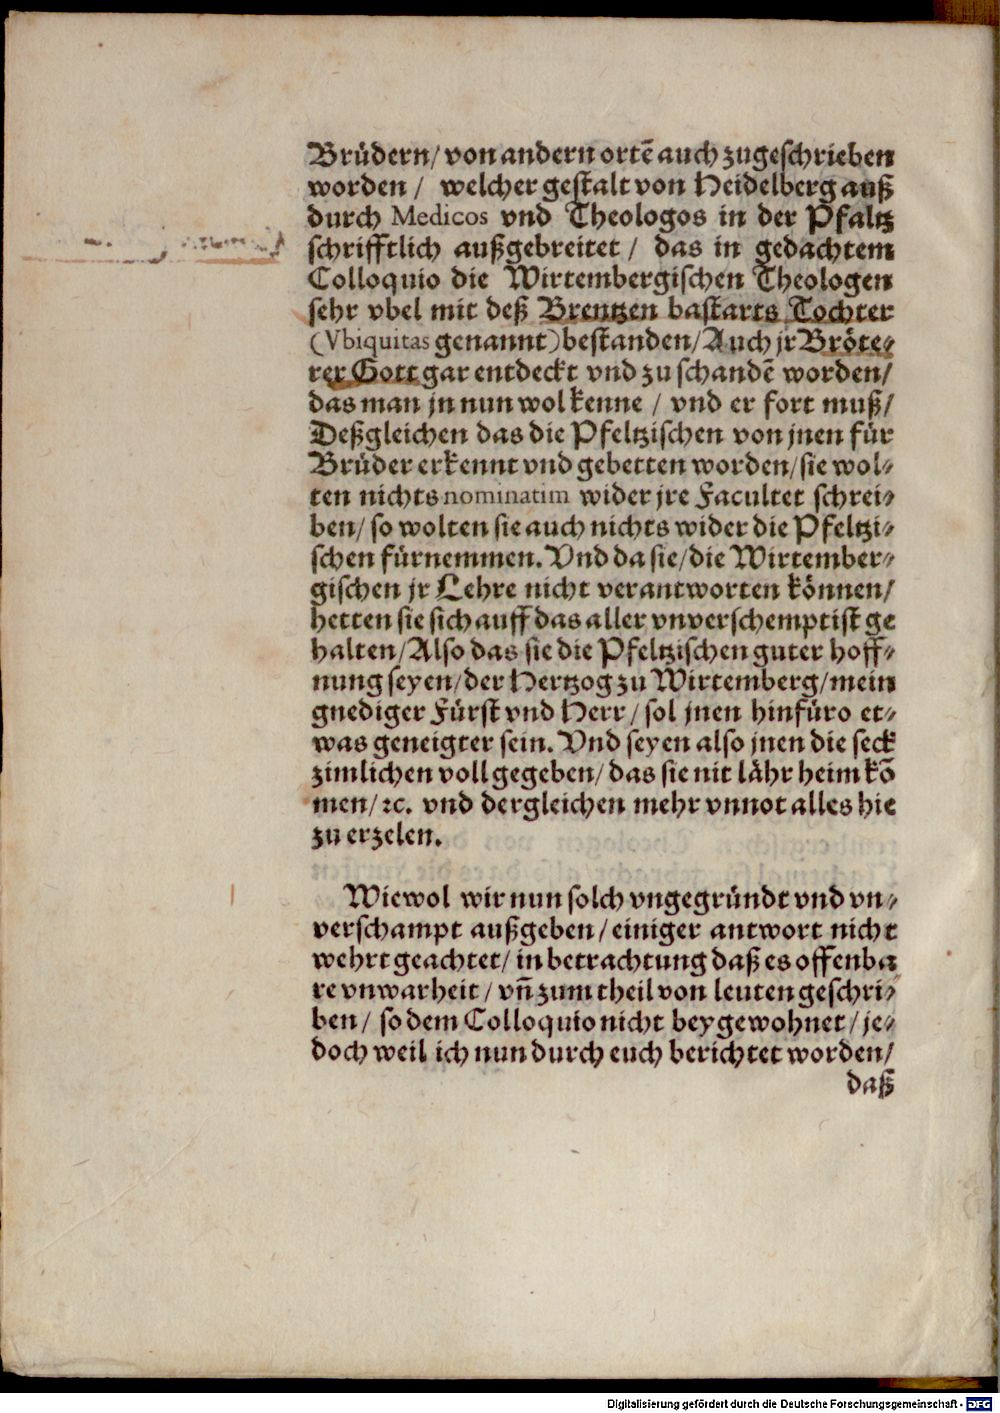 Brüdern/ von andern ortẽ auch zugeschrieben
worden / welcher gestalt von Heidelberg auß
durch Medicos vnd Theologos in der Pfaltz
schrifftlich außgebreitet / das in gedachtem
Colloquio die Wirtembergischen Theologen
sehr vbel mit deß Brentzen bastarts Tochter
(Vbiquitas genannt) bestanden/ Auch jr Bröte-
rer Gott gar entdeckt vnd zu schandẽ worden/
das man jn nun wol kenne / vnd er fort muß/
Deßgleichen das die Pfeltzischen von jnen für
Brüder erkennt vnd gebetten worden/ sie wol-
ten nichts nominatim wider jre Facultet schrei-
ben/ so wolten sie auch nichts wider die Pfeltzi-
schen fürnemmen. Vnd da sie/ die Wirtember-
gischen jr Lehre nicht verantworten können/
hetten sie sich auff das aller vnverschemptist ge
halten/ Also das sie die Pfeltzischen guter hoff-
nung seyen/ der Hertzog zu Wirtemberg/ mein
gnediger Fürst vnd Herr/ sol jnen hinfüro et-
was geneigter sein. Vnd seyen also jnen die seck
zimlichen voll gegeben/ das sie nit lähr heim kõ
men/ ꝛc. vnd dergleichen mehr vnnot alles hie
zu erzelen.
Wiewol wir nun solch vngegründt vnd vn-
verschampt außgeben/ einiger antwort nicht
wehrt geachtet/ in betrachtung daß es offenba
re vnwarheit/ vñ zum theil von leuten geschri-
ben/ so dem Colloquio nicht beygewohnet/ je-
doch weil ich nun durch euch berichtet worden/
daß
Digitalisierung gefördert durch die Deutsche Forschungsgemeinschaft - DFG